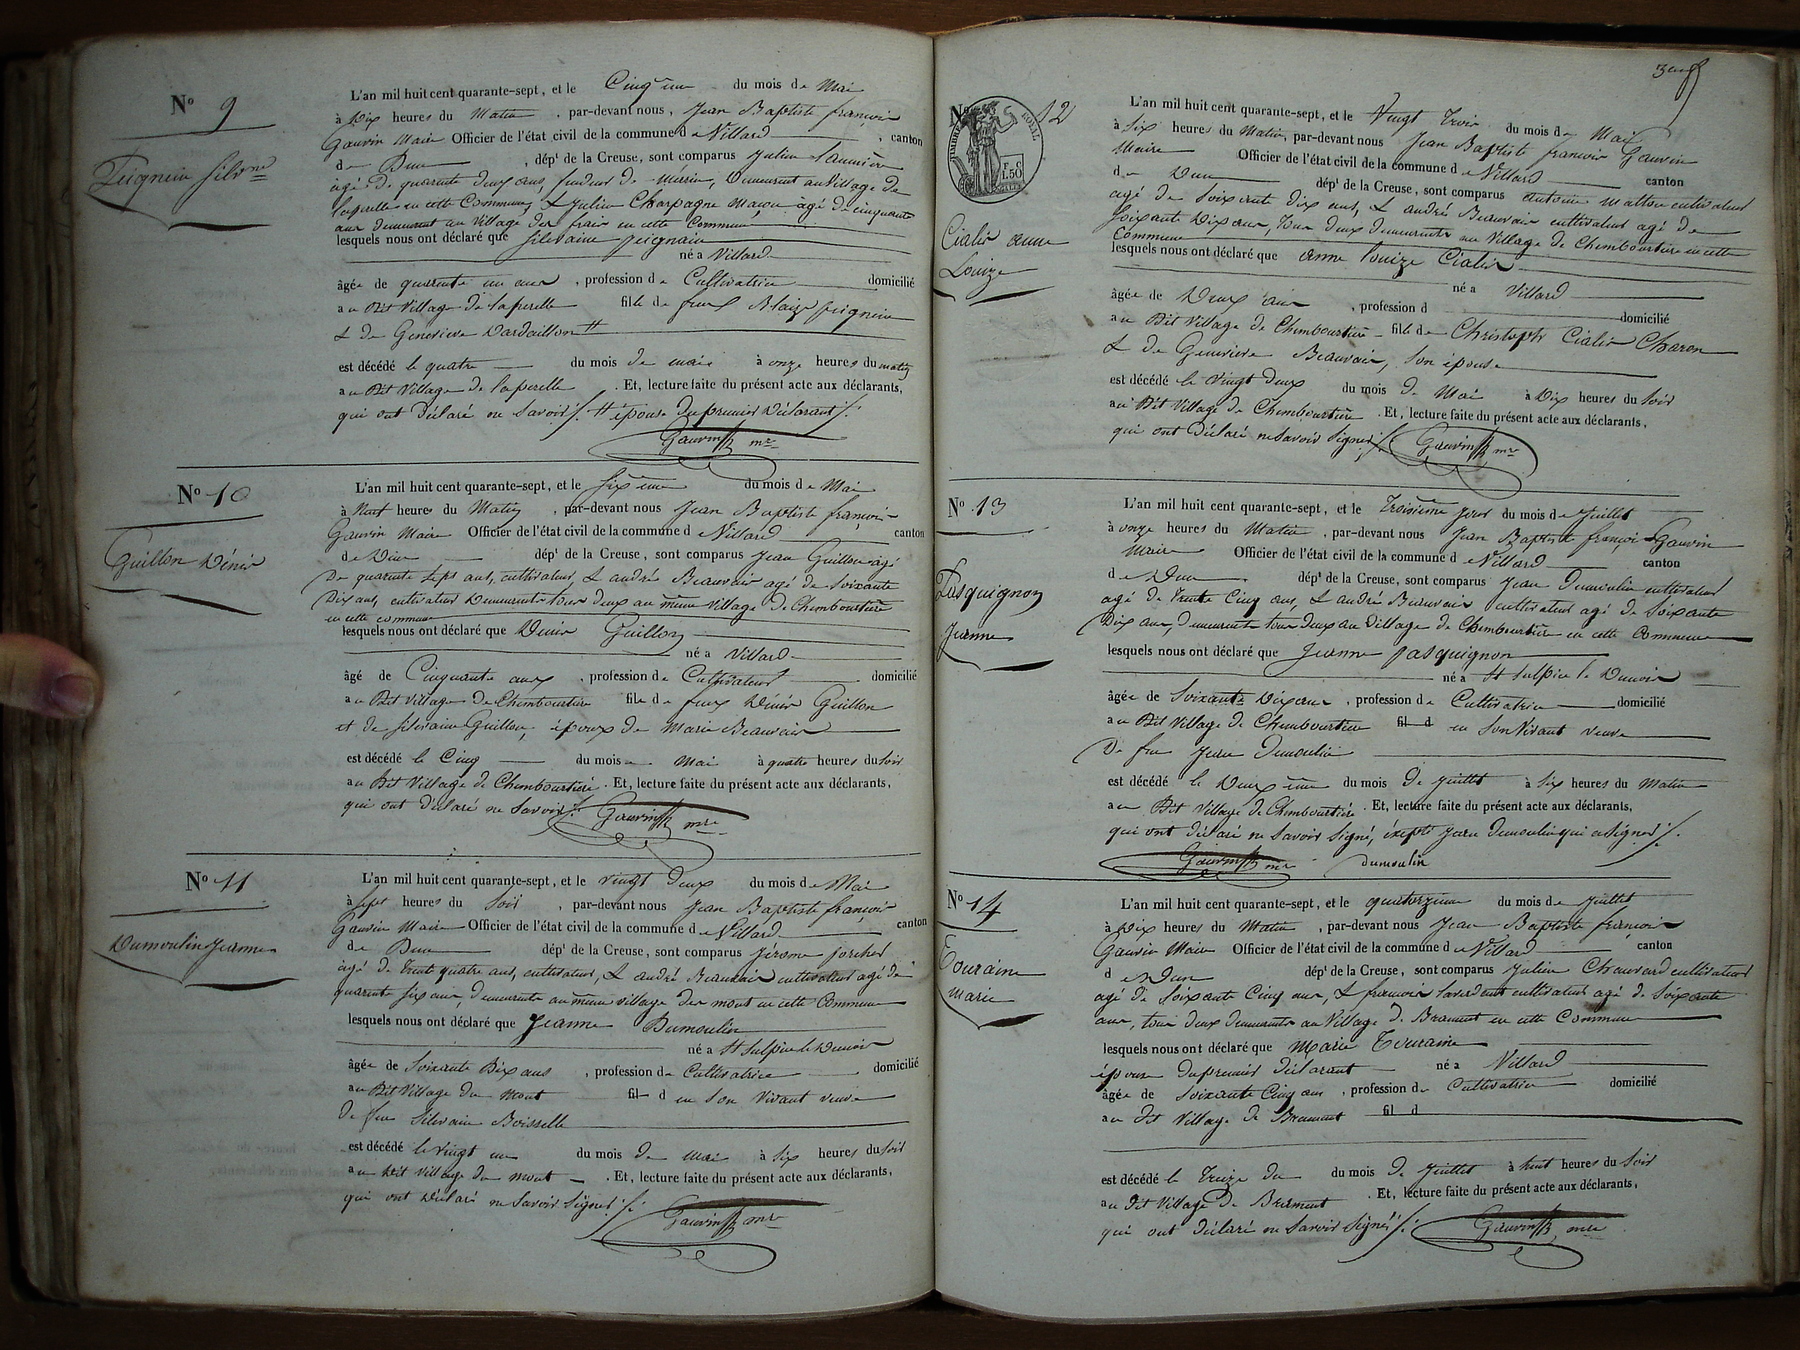 N° 9
Peignein Silvne
L'an mil huit cent quarante-sept, et le Cinq ème du mois de Mai
à Dix heures du Matin, par-devant nous, Jean Baptiste françois
Gauvin Maire Officier de l'état civil de la commune de Villard, canton
de Dun, dépt de la Creuse, sont comparus Julien
agé de quarante deux ans, fendeur de merrin, Demeurant au Village de
laperelle en cette Commune, & Julien Charpagne Maçon agé de cinquante
ans demeurant au Village des frais en cette Commune
lesquels nous ont déclaré que Silvaine peignein
né a Villard
âgée de quarante un ans, profession de Cultivatrice domicilié
au Dit Village de laperelle fille de feux Blaize peignein
& de Genevieve Dardaillon #
est décédé le quatre du mois de mai à onze heures du matin
au Dit Village de laperelle. Et, lecture faite du présent acte aux déclarants,
qui ont Déclaré ne Savoir /. # épouse du premier Déclarant /.
Gauvin mre
N° 10
Guillon Dénis
L'an mil huit cent quarante-sept, et le Six ème du mois de Mai
à Huit heures du Matin, par-devant nous Jean Baptiste françois
Gauvin Maire Officier de l'état civil de la commune de Villard canton
de Dun dépt de la Creuse, sont comparus Jean Guillon agé
De quarante Sept ans, cultivateur, & andré Beauvais agé de Soixante
Dix ans, cultivateur Demeurants tous deux au même Village de Chimbourtière
en cette commune
lesquels nous ont déclaré que Dénis Guillon
né a Villard
âgé de Cinquante ans, profession de Cultivateur domicilié
au Dit Village de Chimbourtière fils de feux Dénis Guillon
et de Silvaine Guillon, époux de Marie Beauvais
est décédé le Cinq du mois de Mai à quatre heures du Soir
au Dit Village de Chimbourtière. Et, lecture faite du présent acte aux déclarants,
qui ont déclaré ne Savoir /.
Gauvin mre
N° 11
Dumoulin Jeanne
L'an mil huit cent quarante-sept, et le vingt deux du mois de Mai
à Sept heures du Soir, par-devant nous Jean Baptiste françois
Gauvin Maire Officier de l'état civil de la commune de Villard canton
de Dun dépt de la Creuse, sont comparus Jérome porcher
agé de Trent quatre ans, cultivateur, & andré Beauvais cultivateur agé de
quarente Six ans, demeurants au même village des mont en cette Commune
lesquels nous ont déclaré que Jeanne Dumoulin
né a St Sulpice le Dunois
âgée de Soixante Dix ans, profession de Cultivatrice domicilié
au Dit Village du Mont fil d en Son Vivant veuve
de feu Silvain Boisselle
est décédé le vingt un du mois de mai à Six heures du Soir
au Dit Village du mont. Et, lecture faite du présent acte aux déclarants,
qui ont Déclaré ne Savoir Signer /.
Gauvin mre
N° 12
TIMBRE ROYAL
1.50
Cialis anne
Louize
L'an mil huit cent quarante-sept, et le Vingt Trois du mois de Mai
à Six heures du Matin, par-devant nous Jean Baptiste françois Gauvin
Maire Officier de l'état civil de la commune de Villard canton
de Dun dépt de la Creuse, sont comparus antoine Mathieu cultivateur
agé de Soixante dix ans, & andré Beauvais cultivateur agé de
Soixante Dix ans, tous deux demeurants au Village de Chimbourtière en cette
Commune
lesquels nous ont déclaré que anne louize Cialis
né a Villard
âgée de Deux ans, profession d domicilié
au Dit Village de Chimbourtière fille de Christophe Cialis Charon
& de Genevieve Beauvais, Son épouse
est décédé le vingt deux du mois de Mai à Dix heures du Soir
au Dit Village de Chimbourtière. Et, lecture faite du présent acte aux déclarants,
qui ont Déclaré ne Savoir Signer /.
Gauvin mre
N° 13
Pasquignon
Jeanne
L'an mil huit cent quarante-sept, et le Troisième jour du mois de Juillet
à onze heures du Matin, par-devant nous Jean Baptiste françois Gauvin
Maire Officier de l'état civil de la commune de Villard canton
de Dun dépt de la Creuse, sont comparus Jean Dumoulin cultivateur
agé de Trente Cinq ans, & andré Beauvais cultivateur agé de Soixante
Dix ans, demeurants tous deux au Village de Chimbourtière en cette Commune
lesquels nous ont déclaré que Jeanne pasquignon
né a St Sulpice le Dunois
âgée de Soixante Dix ans, profession de Cultivatrice domicilié
au Dit Village de Chimbourtière fil d en Son Vivant veuve
De feu Jean Dumoulin
est décédé le Deux ème du mois de Juillet à Six heures du Matin
au Dit Village de Chimbourtière. Et, lecture faite du présent acte aux déclarants,
qui ont déclaré ne Savoir Signé, éxepté Jean Dumoulin qui a Signer /.
Gauvin mre dumoulin
N° 14
Touraine
Marie
L'an mil huit cent quarante-sept, et le quatorzième du mois de Juillet
à Dix heures du Matin, par-devant nous Jean Baptiste françois
Gauvin Maire Officier de l'état civil de la commune de Villard canton
de Dun dépt de la Creuse, sont comparus Julien Chauvard cultivateur
agé de Soixante Cinq ans, & françois cultivateur agé de Soixante
ans, tous deux demeurants au Village de Bramont en cette Commune
lesquels nous ont déclaré que Marie Touraine
épouse du premier déclarant né a Villard
âgée de Soixante Cinq ans, profession de Cultivatrice domicilié
au Dit Village de Bramont fil d
est décédé le Treize du du mois de Juillet à huit heures du Soir
au Dit Village de Bramont. Et, lecture faite du présent acte aux déclarants,
qui ont Déclaré ne Savoir Signer /.
Gauvin mre